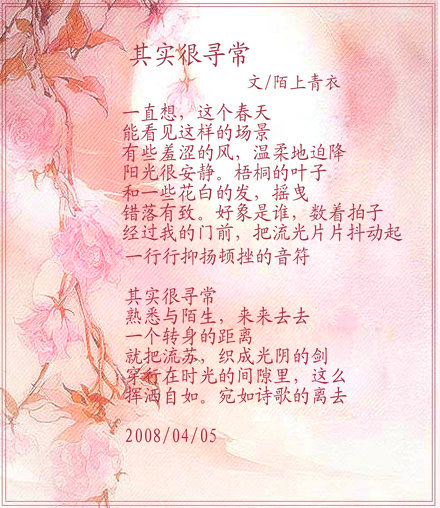 其实很寻常
文/陌上青衣
一直想，这个春天
能看见这样的场景
有些羞涩的风，温柔地迫降
阳光很安静。梧桐的叶子
和一些花白的发，摇曳
错落有致。好象是谁，数着拍子
经过我的门前，把流光片片抖动起
一行行抑扬顿挫的音符
其实很寻常
熟悉与陌生，来来去去
一个转身的距离
就把流苏，织成光阴的剑
穿行在时光的间隙里，这么
挥洒自如。宛如诗歌的离去
2008/04/05